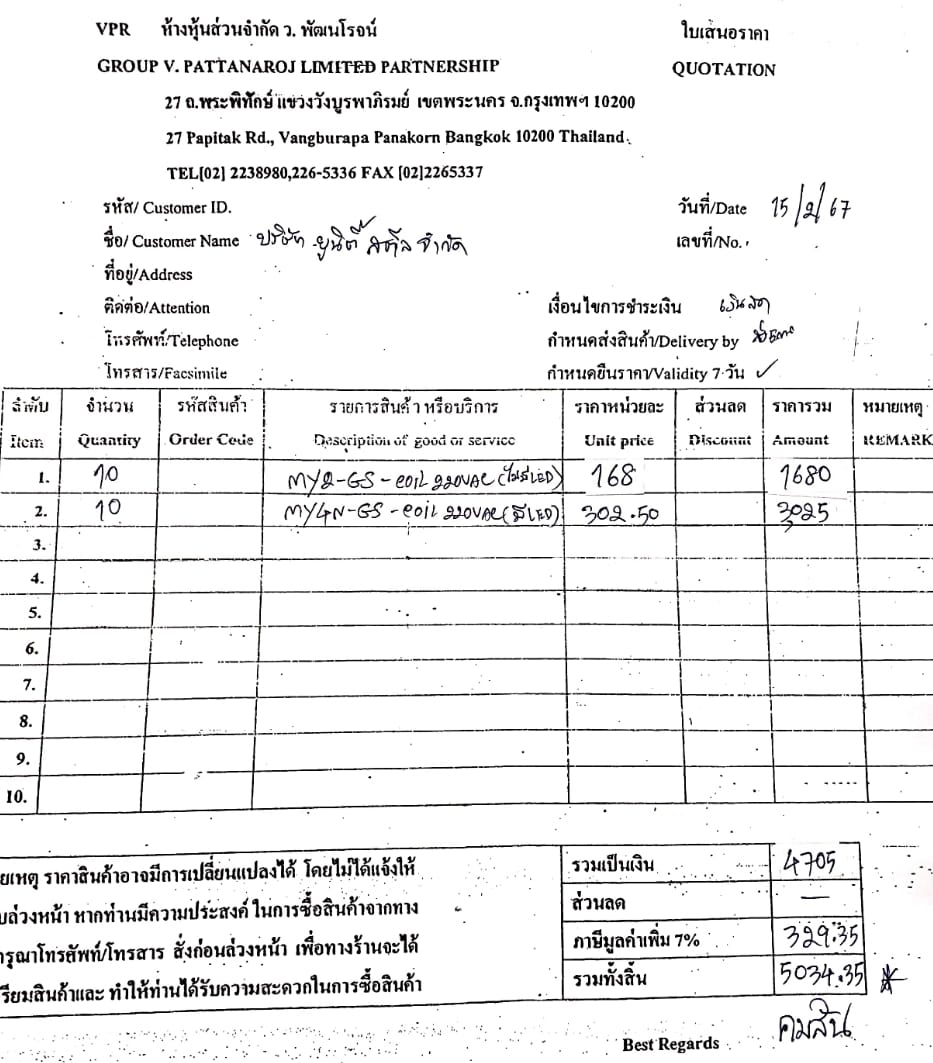 VPR ห้างหุ้นส่วนจำกัด ว. พัฒนโรจน์ ใบเสนอราคา
GROUP V. PATTANAROJ LIMITED PARTNERSHIP QUOTATION
27 ถ.พระพิทักษ์ แขวงวังบูรพาภิรมย์ เขตพระนคร จ.กรุงเทพฯ 10200
27 Papitak Rd., Vangburapa Panakorn Bangkok 10200 Thailand.
TEL[02] 2238980,226-5336 FAX [02]2265337
รหัส/ Customer ID. วันที่/Date 15/2/67
ชื่อ/ Customer Name บริษัท ยูนิตี้ สตีล จำกัด เลขที่/No.
ที่อยู่/Address
ติดต่อ/Attention เงื่อนไขการชำระเงิน เงินสด
โทรศัพท์/Telephone กำหนดส่งสินค้า/Delivery by
โทรสาร/Facsimile กำหนดยืนราคา/Validity 7 วัน ✓
ลำดับ จำนวน รหัสสินค้า รายการสินค้า หรือบริการ ราคาหน่วยละ ส่วนลด ราคารวม หมายเหตุ
Item Quantity Order Code Description of good or service Unit price Discount Amount REMARK
1. 10 MY2-GS-coil 220VAC (ไม่มีLED) 168 1680
2. 10 MY4N-GS-coil 220VAC (มีLED) 302.50 3025
3.
4.
5.
6.
7.
8.
9.
10.
ยเหตุ ราคาสินค้าอาจมีการเปลี่ยนแปลงได้ โดยไม่ได้แจ้งให้ รวมเป็นเงิน 4705
บล่วงหน้า หากท่านมีความประสงค์ ในการซื้อสินค้าจากทาง ส่วนลด —
กรุณาโทรศัพท์/โทรสาร สั่งก่อนล่วงหน้า เพื่อทางร้านจะได้ ภาษีมูลค่าเพิ่ม 7% 329.35
รียมสินค้าและ ทำให้ท่านได้รับความสะดวกในการซื้อสินค้า รวมทั้งสิ้น 5034.35
Best Regards คมสัน